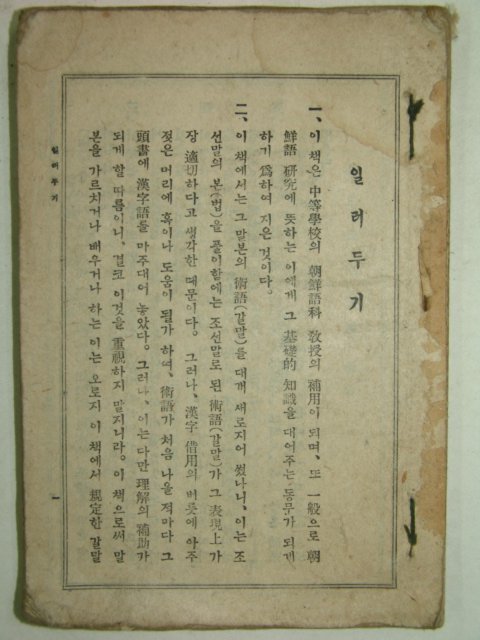 일러두기
一、이 책은 中等學校의 朝鮮語科 敎授의 補用이 되며、또 一般으로 朝
鮮語 硏究에 뜻하는 이에게 그 基礎的 知識을 대어주는 동무가 되게
하기 爲하여 지은 것이다。
二、이 책에서는 그 말본의 術語(갈말)를 대개 새로지어 썼나니、이는 조
선말의 본(법)을 풀이함에는 조선말로 된 術語(갈말)가 그 表現上 가
장 適切하다고 생각한 때문이다。그러나、漢字 借用의 버릇에 아주
젖은 머리에 혹이나 도움이 될가 하여、術語가 처음 나올 적마다 그
頭書에 漢字語를 마주대어 놓았다。그러나、이는 다만 理解의 補助가
되게 할 따름이니、결코 이것을 重視하지 말지니라。이 책으로써 말
본을 가르치거나 배우거나 하는 이는 오로지 이 책에서 規定한 갈말
일러두기
一